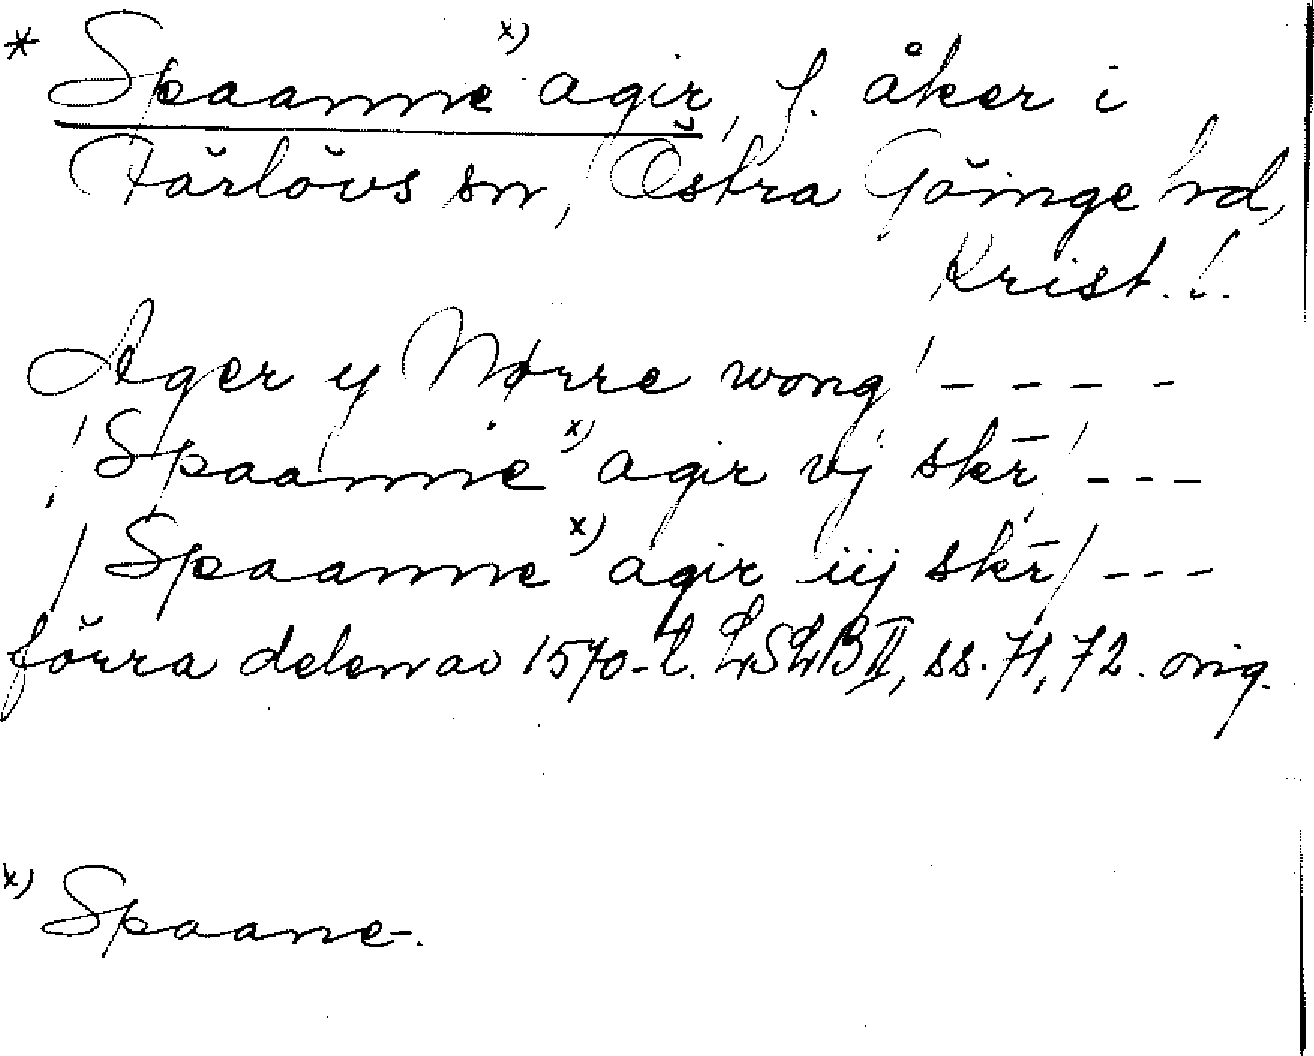 * Spaanne x) agir, f. åker i
Färlövs sn, Östra Göinge hd,
Krist. l.
Ager y Nørre wong' - - - -
/ Spaanne x) agir vj skr̄ / - - -
/ Spaanne x) agir iij skr̄ / - - -
förra delen av 1570-t. LSLB II, ss. 71, 72. orig.
x) Spaane-.